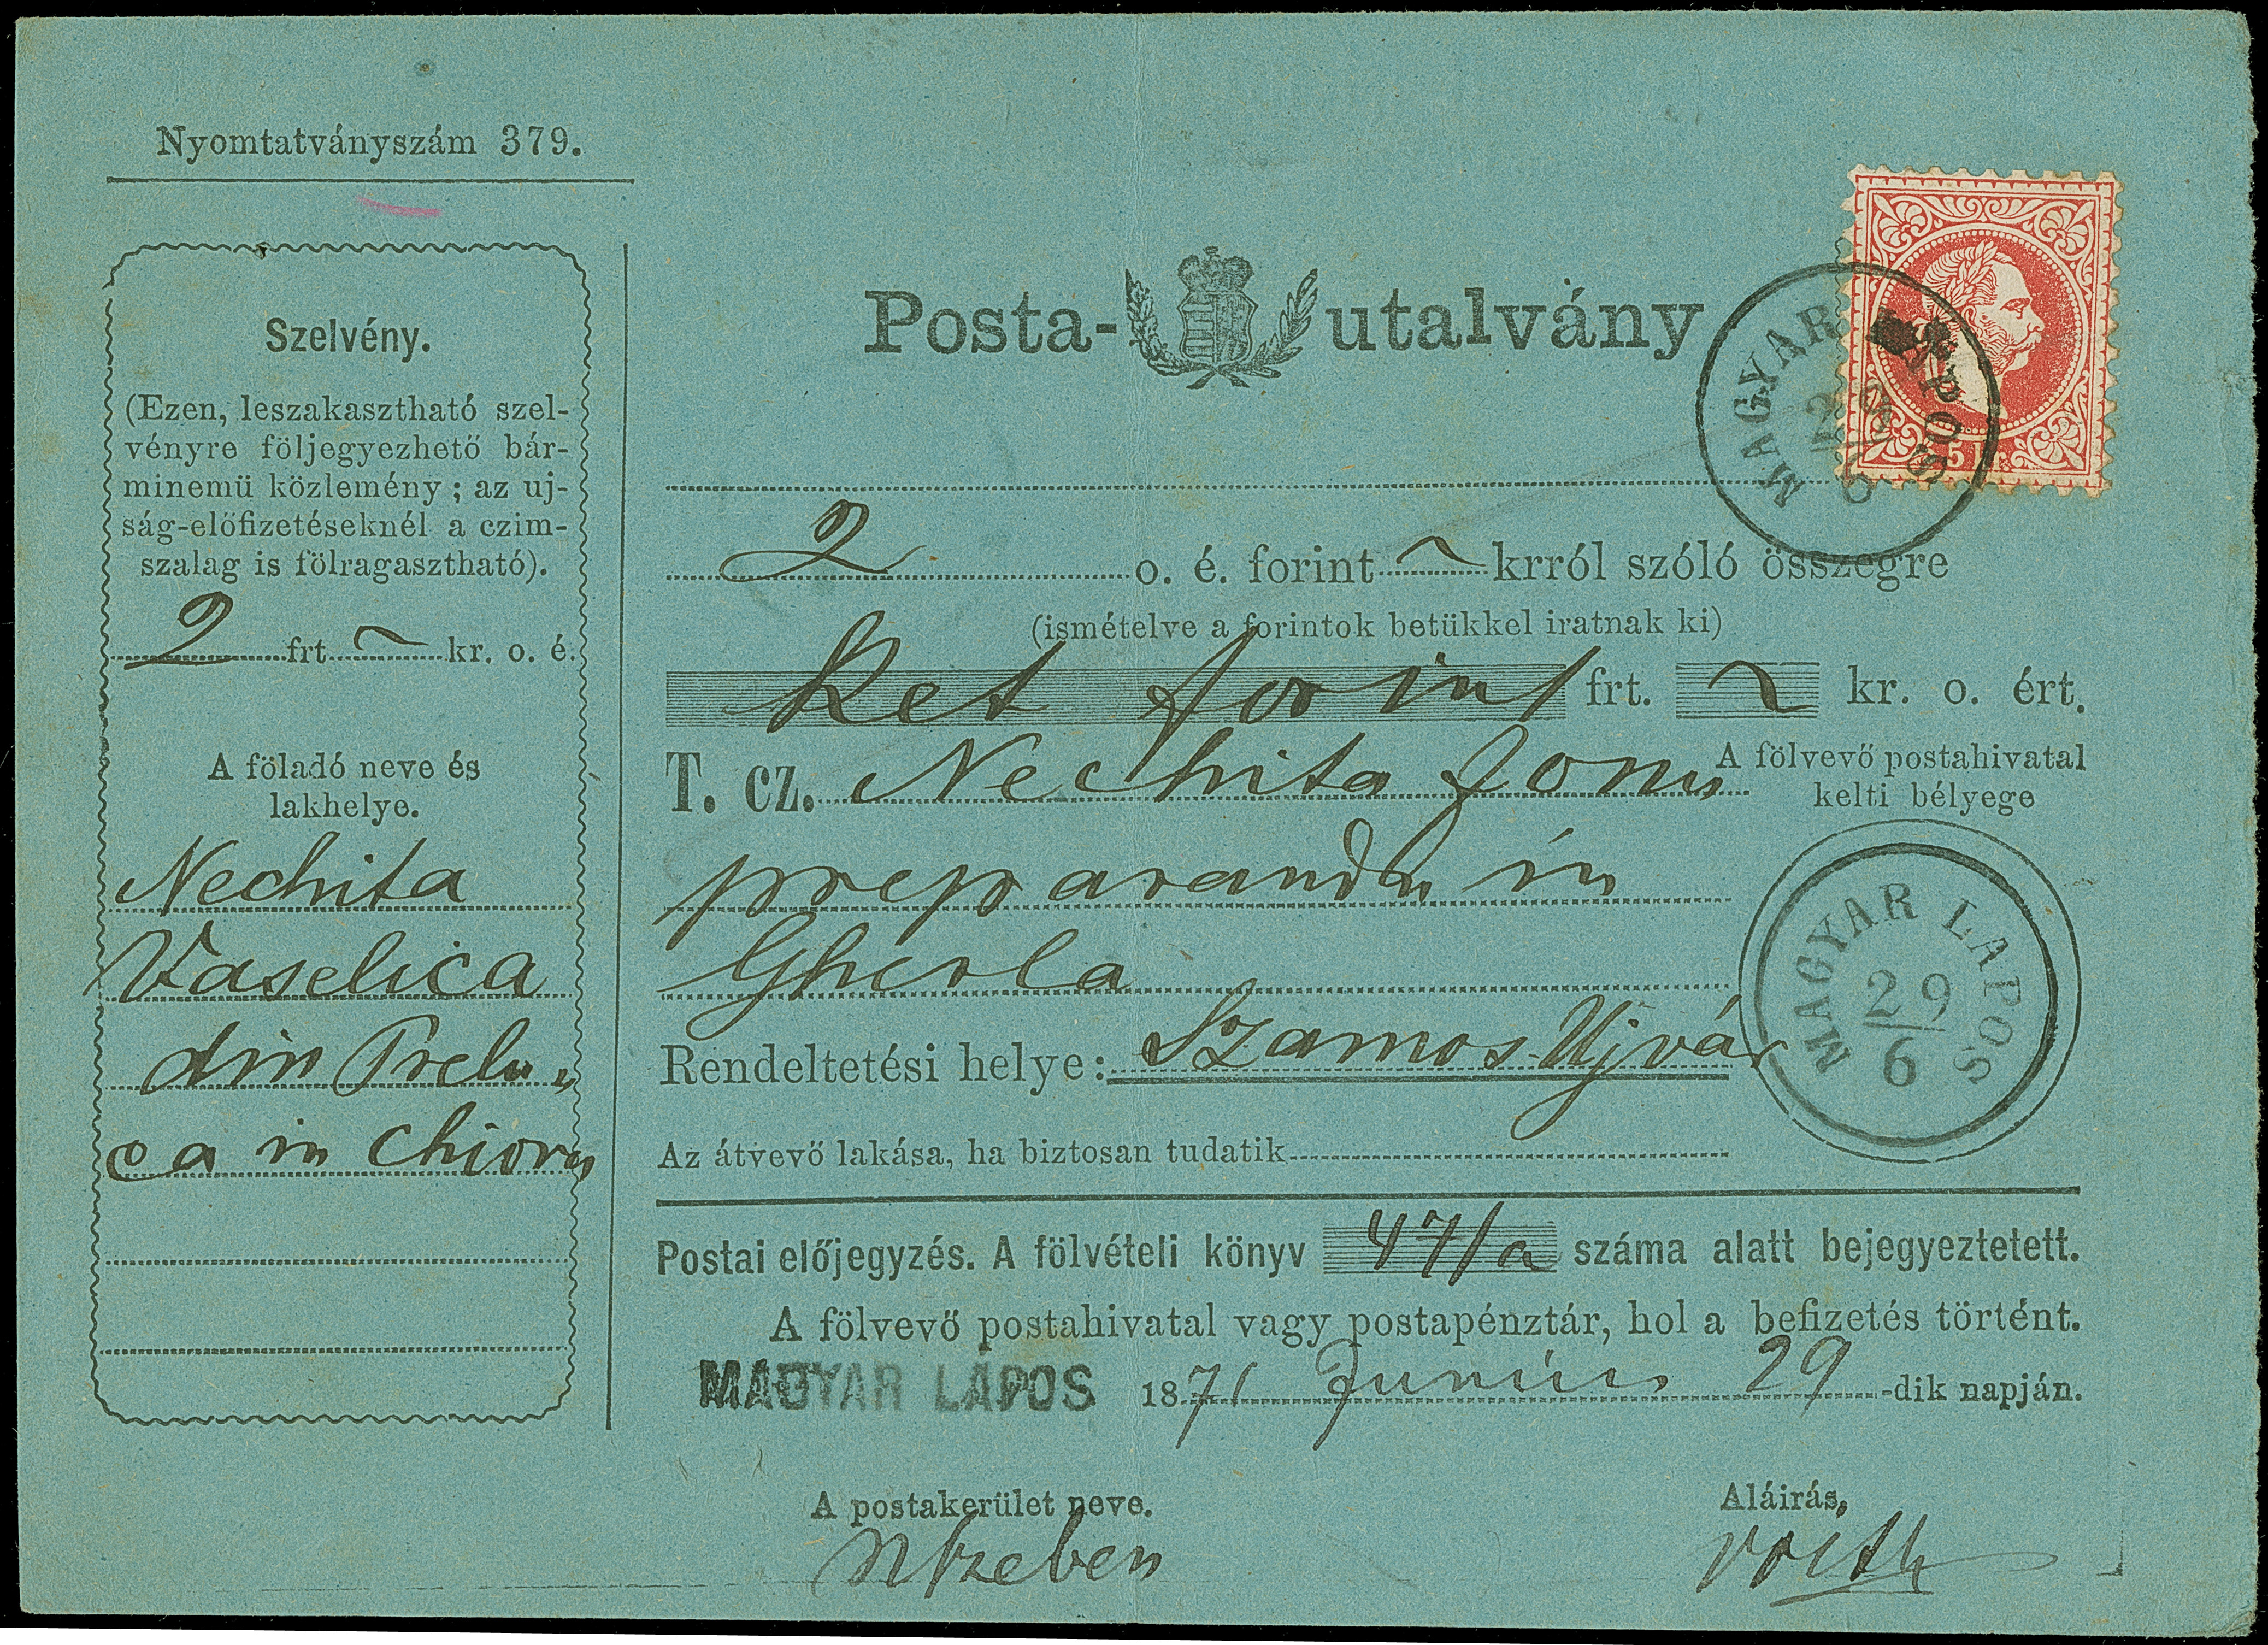 Nyomtatványszám 379.
Szelvény.
(Ezen, leszakasztható szel-
vényre följegyezhető bár-
minemü közlemény ; az uj-
ság-előfizetéseknél a czim-
szalag is fölragasztható).
2 frt kr. o. é.
A föladó neve és
lakhelye.
Nechita
Vaselica
din Prelu-
ca in Chioru
Posta-utalvány
MAGYAR LÁPOS
29
6
5 kr.
2 o. é. forint krról szóló összegre
(ismételve a forintok betükkel iratnak ki)
Ket forint frt. kr. o. ért.
T. cz. Nechita Jonu
A fölvevő postahivatal
kelti bélyege
preparandu in
Gherla
MAGYAR LAPOS
29
6
Rendeltetési helye: Szamos-Ujvár
Az átvevő lakása, ha biztosan tudatik
Postai előjegyzés. A fölvételi könyv 47/a száma alatt bejegyeztetett.
A fölvevő postahivatal vagy postapénztár, hol a befizetés történt.
MAGYAR LÁPOS 1871 Junius 29 -dik napján.
A postakerület neve.
Aláirás,
Nszeben
Voith